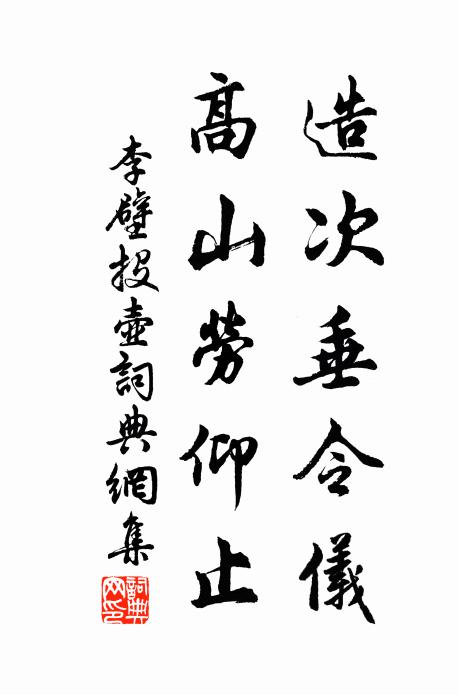 造次垂令儀
高山勞仰止
李壁投壺詞典網集
詞典網印